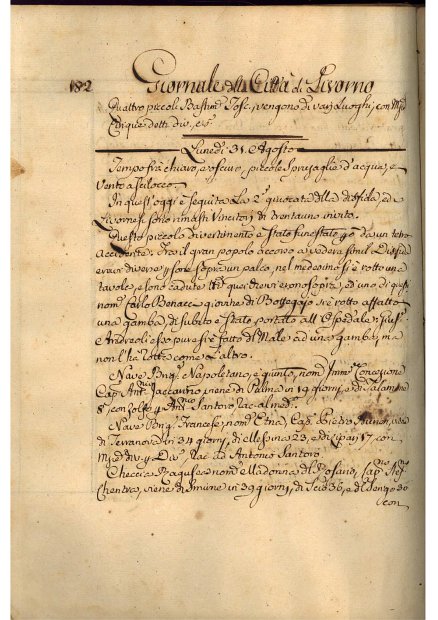 182 Giornale della Città di Livorno
Quattro piccoli Bastim.ti Tosc. vengono di varj Luoghi, con
Cinque detti div. e
Lunedì 31 Agosto
Tempo frà chiaro, e fosco, piccole Spruzzaglie d'acqua, e
Vento a Scilocco.
In quest'oggi è seguita La 2.a giuocata della disfida, ed i
Livornesi sono rimasti Vincitori di trentauno invito.
Questo piccolo divertimento è stato funestato da un tetro
Accidente. Frà il gran popolo accorso a vedere simil
erano diverse persone sopra un palco, nel medesimo si è rotto una
tavola, e sono cadute quei che vi erono sopra, ed uno di questi
nom. Carlo Bonacc giovane di Bottega si è rotto affatto
una gamba, di subito è stato portato all'Ospedale,
Andreoli esso pure si è fatto del Male ad una gamba, ma
non l'ha rotta come l'altro.
Nave Napoletano, e quinto, nom. Imm. Concezione
Cap. Ant. viene di Palma in 19 giorni, e di
8 con Zolfo, ad Ant. Santoro, Rac. al med.
Nave Francese, nom. Etna, Cap. Pietro viene
di Terranova in 34 giorni, di Messina 23, e di 17 con
Rac. ad Antonio Santoro
Checcia Ragusea nom. Madonna del Rosario, Cap.
viene di Smirne in 39 giorni, di Scio 36, e di 30
con